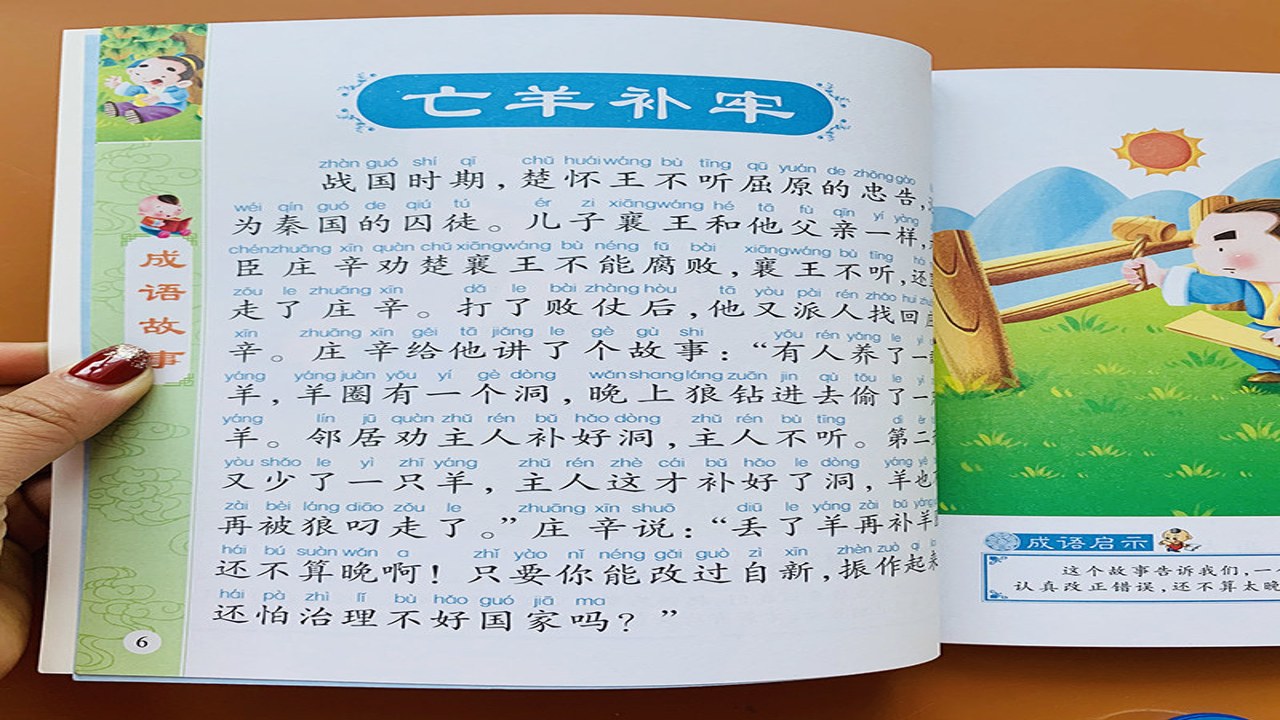 亡羊补牢
zhàn guó shí qī chǔ huái wáng bù tīng qū yuán de zhōng gào
战国时期，楚怀王不听屈原的忠告，
wéi qín guó de qiú tú ér zi xiāng wáng hé tā fù qīn yí yàng
为秦国的囚徒。儿子襄王和他父亲一样，
chén zhuāng xīn quàn chǔ xiāng wáng bù néng fǔ bài xiāng wáng bù tīng hái
臣庄辛劝楚襄王不能腐败，襄王不听，还
zǒu le zhuāng xīn dǎ le bài zhàng hòu tā yòu pài rén zhǎo huí zhuāng
走了庄辛。打了败仗后，他又派人找回庄
xīn zhuāng xīn gěi tā jiǎng le gè gù shi yǒu rén yǎng le yì
辛。庄辛给他讲了个故事：“有人养了一
yáng yáng juàn yǒu yí gè dòng wǎn shang láng zuān jìn qù tōu le yì
羊，羊圈有一个洞，晚上狼钻进去偷了一
yáng lín jū quàn zhǔ rén bǔ hǎo dòng zhǔ rén bù tīng dì èr
羊。邻居劝主人补好洞，主人不听。第二
yòu shǎo le yì zhī yáng zhǔ rén zhè cái bǔ hǎo le dòng yáng yě
又少了一只羊，主人这才补好了洞，羊也
zài bèi láng diāo zǒu le zhuāng xīn shuō diū le yáng zài bǔ yáng
再被狼叼走了。”庄辛说：“丢了羊再补羊
hái bú suàn wǎn a zhǐ yào nǐ néng gǎi guò zì xīn zhèn zuò qǐ lái
还不算晚啊！只要你能改过自新，振作起来
hái pà zhì lǐ bù hǎo guó jiā ma
还怕治理不好国家吗？”
成语故事
6
成语启示
这个故事告诉我们，一
认真改正错误，还不算太晚